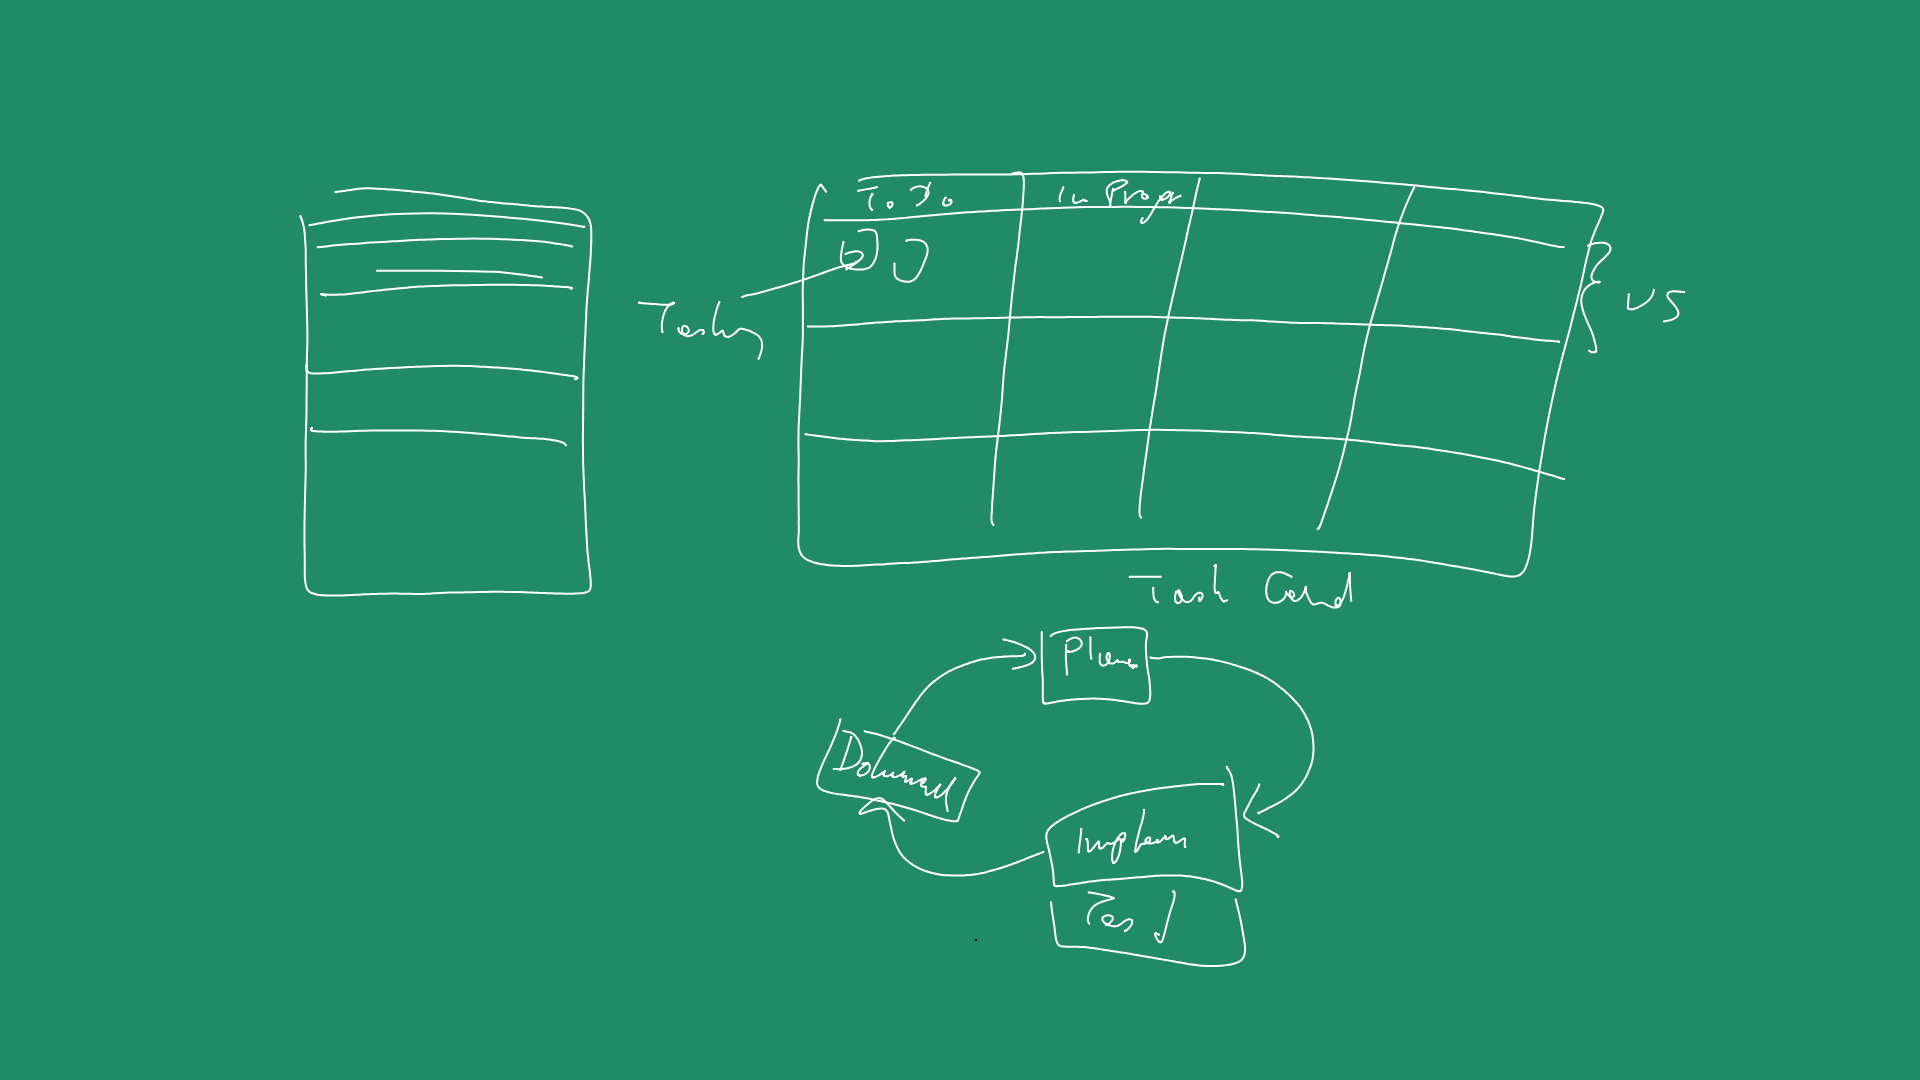 To Do
In Progr
Tasks
US
Task Card
Plan
Implem
Test